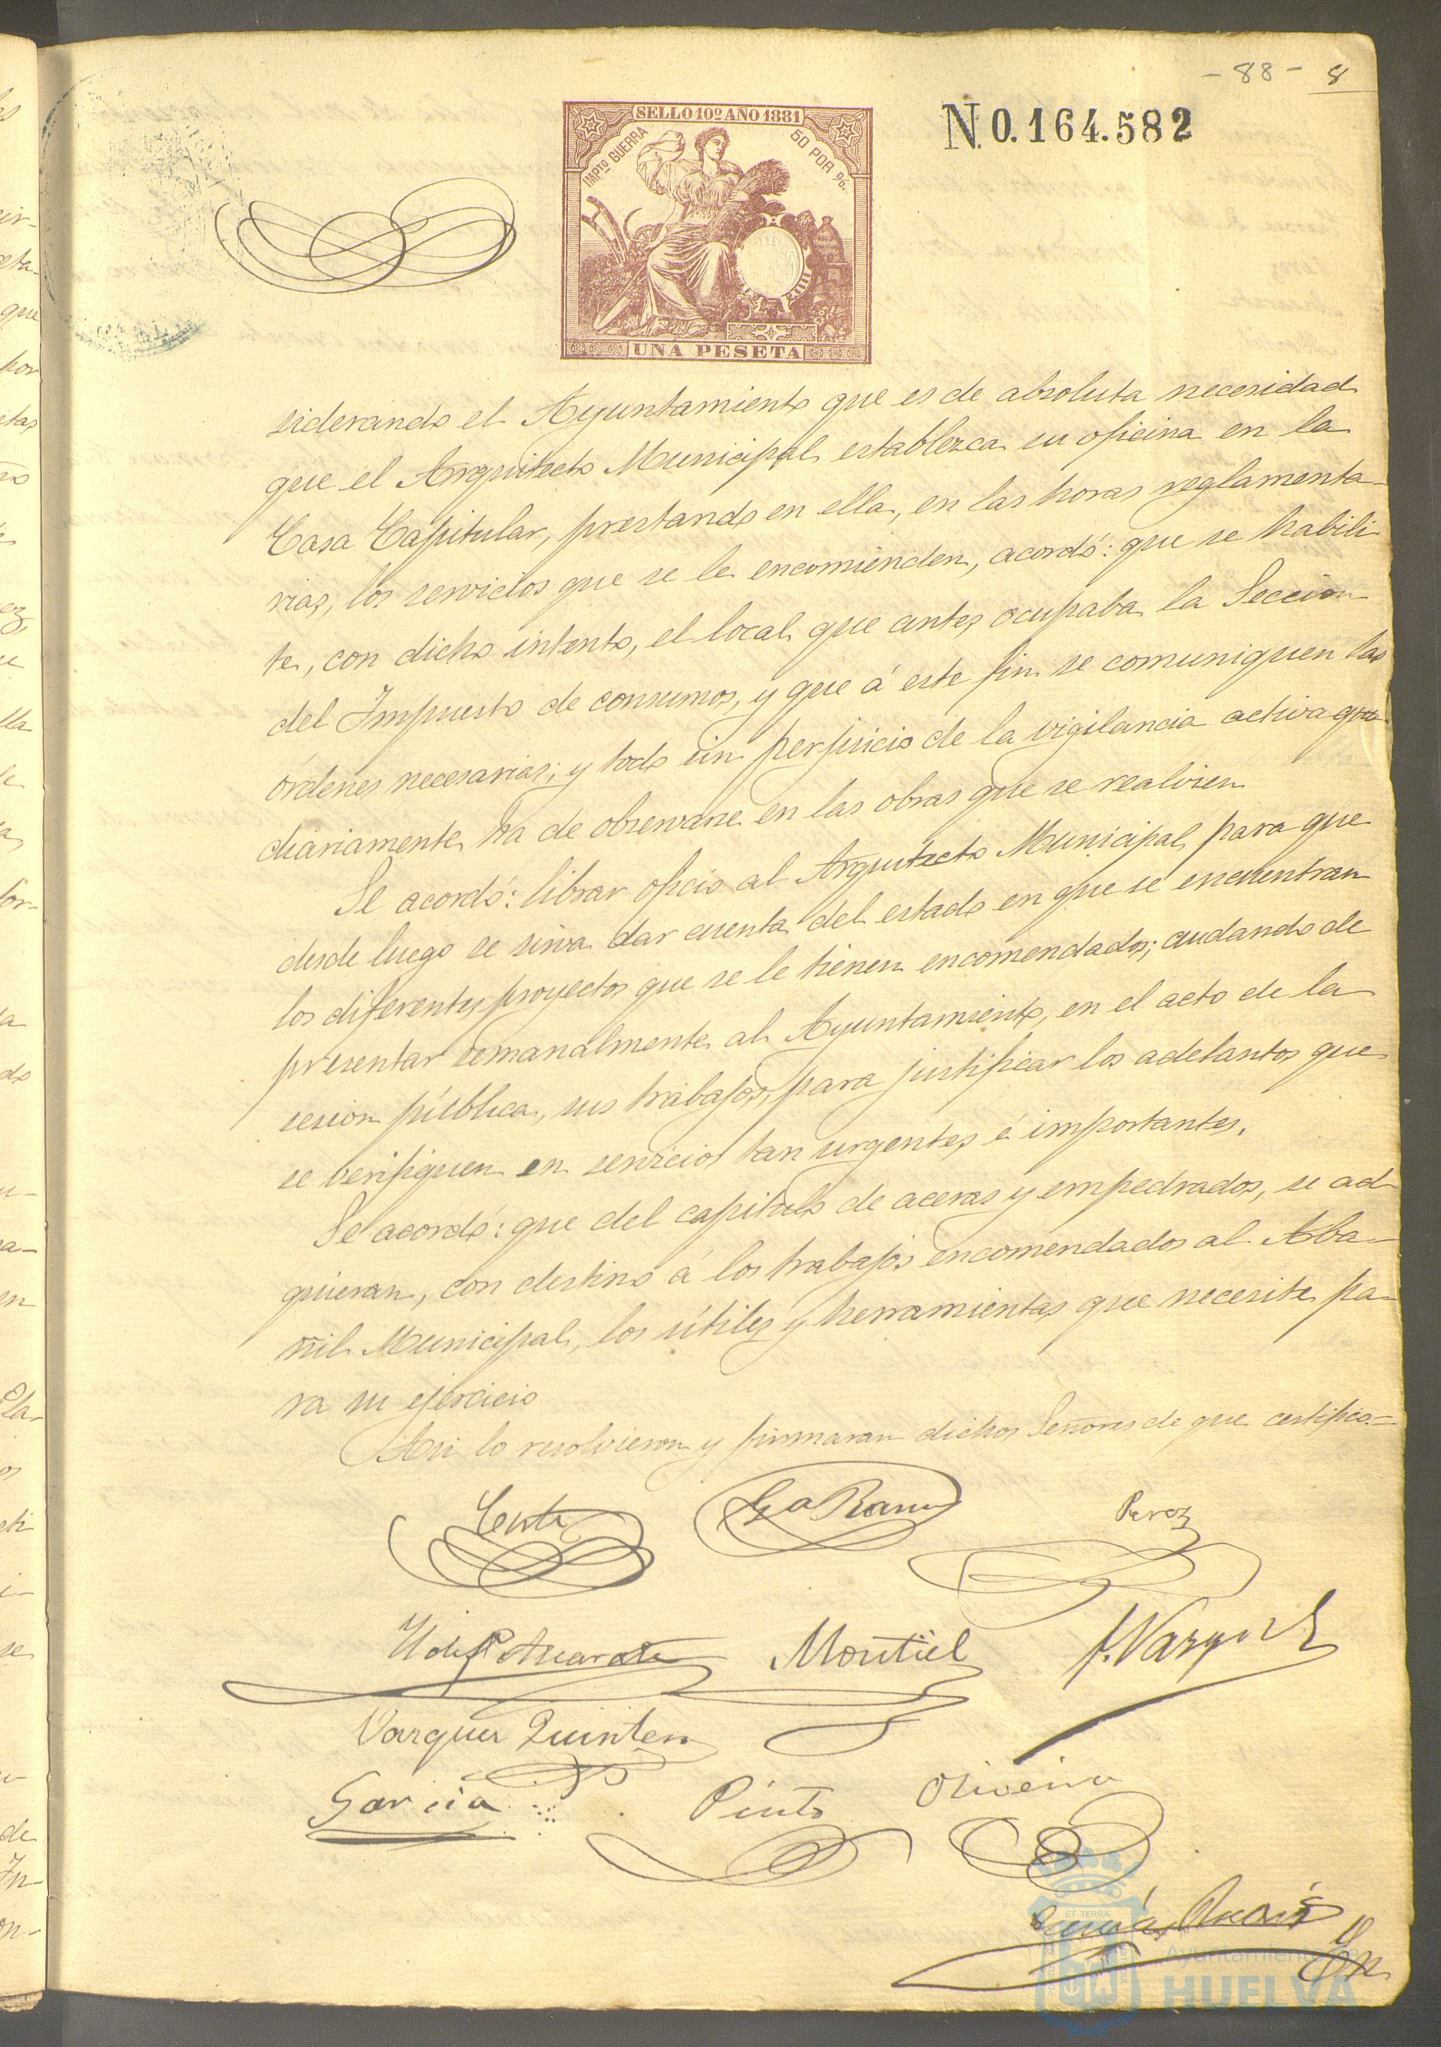 - 88 - 8
SELLO 10º AÑO 1881
IMPTO GUERRA
50 POR %.
N 0.164.582
UNA PESETA
siderando el Ayuntamiento que es de absoluta necesidad
que el Arquitecto Municipal establezca su oficina en la
Casa Capitular, prestando en ella, en las horas reglamenta-
rias, los servicios que se le encomienden, acordó: que se habili
te, con dicho intento, el local que antes ocupaba la Seccion
del Impuesto de consumos, y que á este fin se comuniquen las
ordenes necesarias; y todo sin perjuicio de la vigilancia activa que
diariamente ha de observarse en las obras que se realicen
Se acordó: librar oficio al Arquitecto Municipal para que
desde luego se sirva dar cuenta del estado en que se encuentran
los diferentes proyectos que se le tienen encomendados; cuidando de
presentar semanalmente al Ayuntamiento, en el acto de la
sesion pública, sus trabajos, para justificar los adelantos que
se verifiquen en servicios tan urgentes é importantes.
Se acordó: que del capitulo de aceras y empedrados, se ad
quieran, con destino á los trabajos encomendados al Alba-
ñil Municipal, los útiles y herramientas que necesite pa-
ra su ejercicio
Asi lo resolvieron y firmaran dichos Señores de que certifico=
Gª Ramos Perez
Montiel J. Vazquez
Vazquez Quintero
Garcia Pinto Oliveira
ET TERRÆ
Ayuntamiento
HUELVA